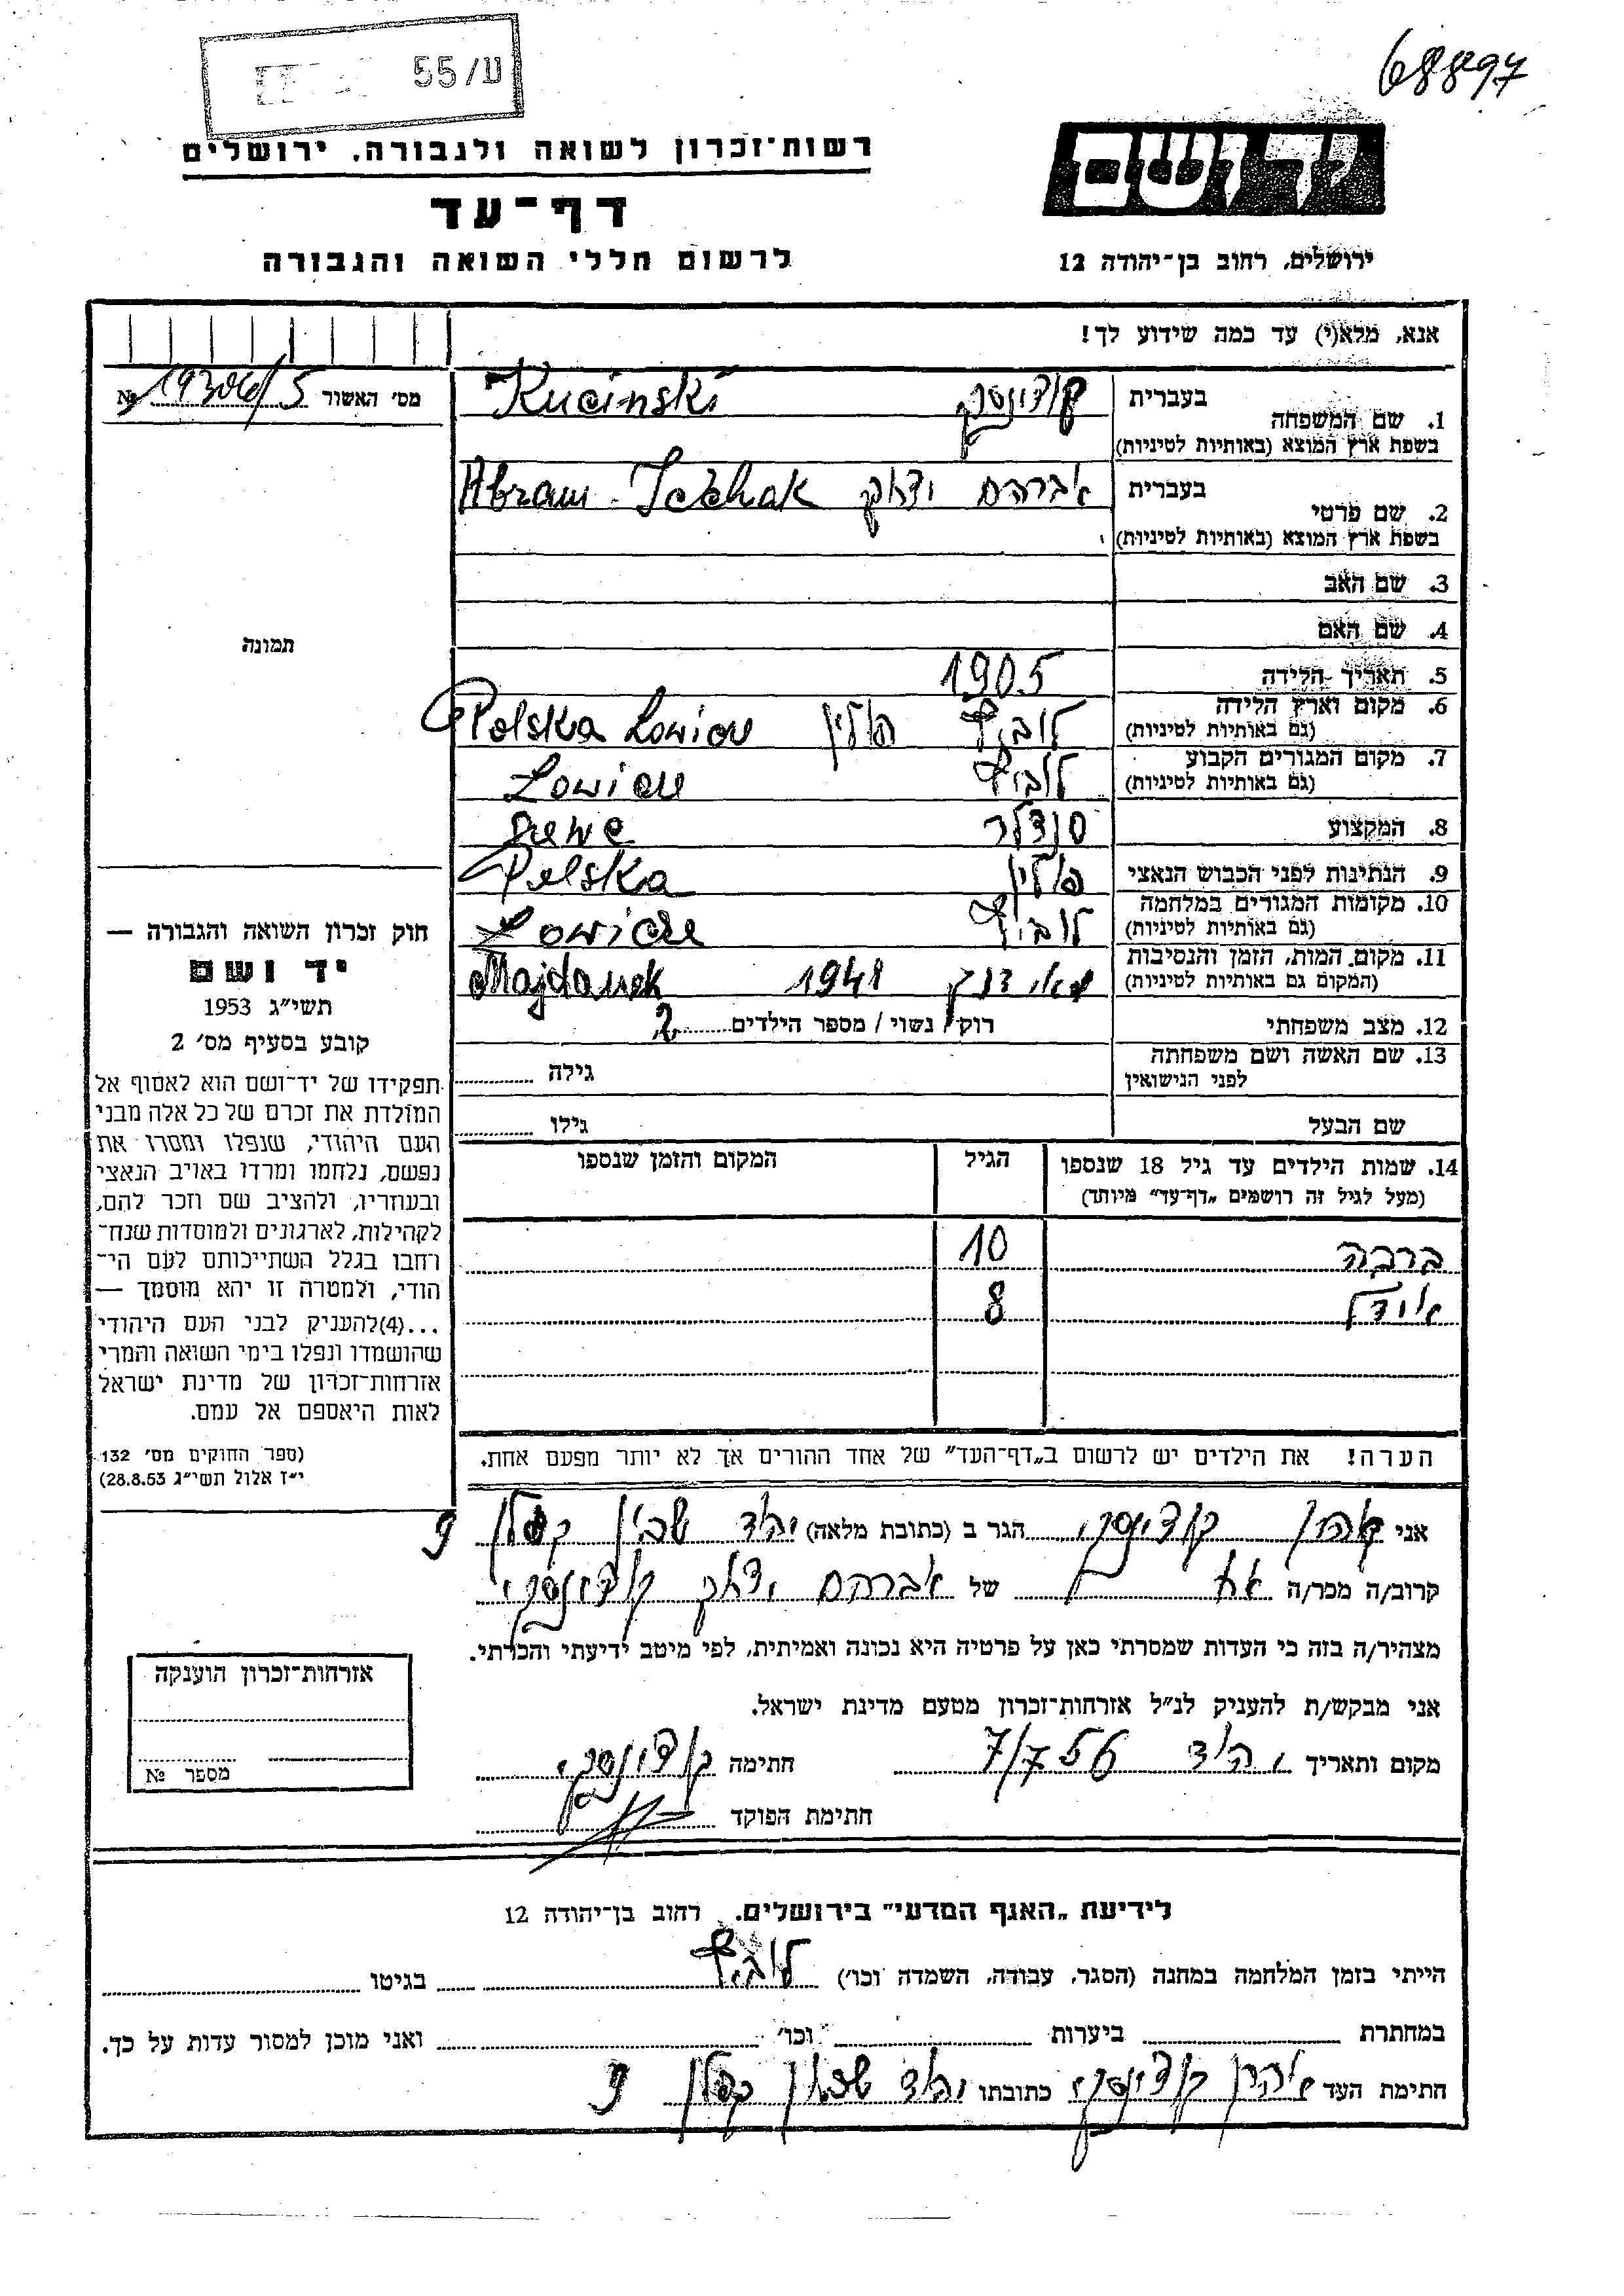 68897
ע/55
יד ושם
רשות־זכרון לשואה ולגבורה, ירושלים
דף־עד
לרשום חללי השואה והגבורה
ירושלים, רחוב בן־יהודה 12
אנא, מלא(י) עד כמה שידוע לך!
מס׳ האשור 19306/5 №
1. שם המשפחה
בעברית
Kucinski
בשפת ארץ המוצא (באותיות לטיניות)
2. שם פרטי
בעברית אברהם יצחק Abram-Icchak
בשפת ארץ המוצא (באותיות לטיניות)
3. שם האב
4. שם האם
5. תאריך הלידה 1905
6. מקום וארץ הלידה
(גם באותיות לטיניות) לוביץ פולין Polska Lowicu
7. מקום המגורים הקבוע
(גם באותיות לטיניות) לוביץ
8. המקצוע סנדלר
9. הנתינות לפני הכבוש הנאצי פולין Polska
10. מקומות המגורים במלחמה
(גם באותיות לטיניות) לוביץ
11. מקום המות, הזמן והנסיבות
(המקום גם באותיות לטיניות) מאידנק Majdanek
12. מצב משפחתי רוק / נשוי / מספר הילדים 2
13. שם האשה ושם משפחתה
לפני הנישואין גילה
שם הבעל גילו
תמונה
חוק זכרון השואה והגבורה —
יד ושם
תשי״ג 1953
קובע בסעיף מס׳ 2
תפקידו של יד־ושם הוא לאסוף אל
המולדת את זכרם של כל אלה מבני
העם היהודי, שנפלו ומסרו את
נפשם, נלחמו ומרדו באויב הנאצי
ובעוזריו, ולהציב שם וזכר להם,
לקהילות, לארגונים ולמוסדות שנח־
רחבו בגלל השתייכותם לעם הי־
הודי, ולמטרה זו יהא מוסמך —
...(4)להעניק לבני העם היהודי
שהושמדו ונפלו בימי השואה והמרי
אזרחות־זכרון של מדינת ישראל
לאות היאספם אל עמם.
(ספר החוקים מס׳ 132
י״ז אלול תשי״ג 28.8.53)
14. שמות הילדים עד גיל 18 שנספו
(מעל לגיל זה רושמים „דף־עד” מיוחד)
הגיל
המקום והזמן שנספו
10
8
הערה! את הילדים יש לרשום ב„דף־העד” של אחד ההורים אך לא יותר מפעם אחת.
אני אהרן קוצינסקי הגר ב (כתובת מלאה) 9
קרוב/ה מכר/ה אח של אברהם יצחק קוצינסקי
מצהיר/ה בזה כי העדות שמסרתי כאן על פרטיה היא נכונה ואמיתית, לפי מיטב ידיעתי והכרתי.
אני מבקש/ת להעניק לנ״ל אזרחות־זכרון מטעם מדינת ישראל.
מקום ותאריך 7/7 56 חתימה קוצינסקי
חתימת הפוקד
אזרחות־זכרון הוענקה
מספר №
לידיעת „האגף המדעי” בירושלים, רחוב בן־יהודה 12
הייתי בזמן המלחמה במחנה (הסגר, עבודה, השמדה וכו׳) לוביץ בגיטו
במחתרת ביערות וכו׳ ואני מוכן למסור עדות על כך.
חתימת העד אהרן קוצינסקי כתובתו 9